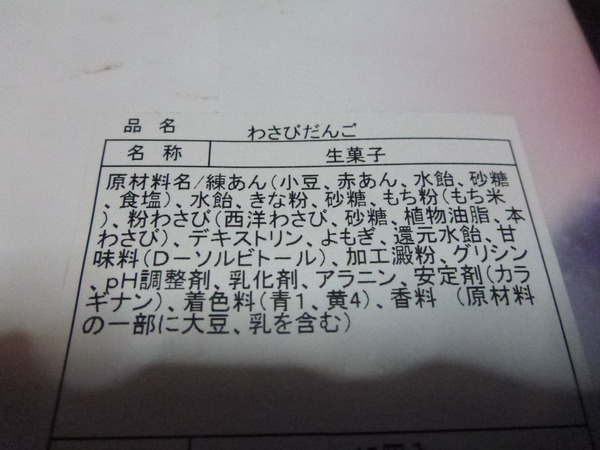 品名 わさびだんご
名称 生菓子
原材料名/練あん(小豆、赤あん、水飴、砂糖
、食塩)、水飴、きな粉、砂糖、もち粉(もち米
)、粉わさび(西洋わさび、砂糖、植物油脂、本
わさび)、デキストリン、よもぎ、還元水飴、甘
味料(D-ソルビトール)、加工澱粉、グリシン
、pH調整剤、乳化剤、アラニン、安定剤(カラ
ギナン)、着色料(青1、黄4)、香料 (原材料
の一部に大豆、乳を含む)